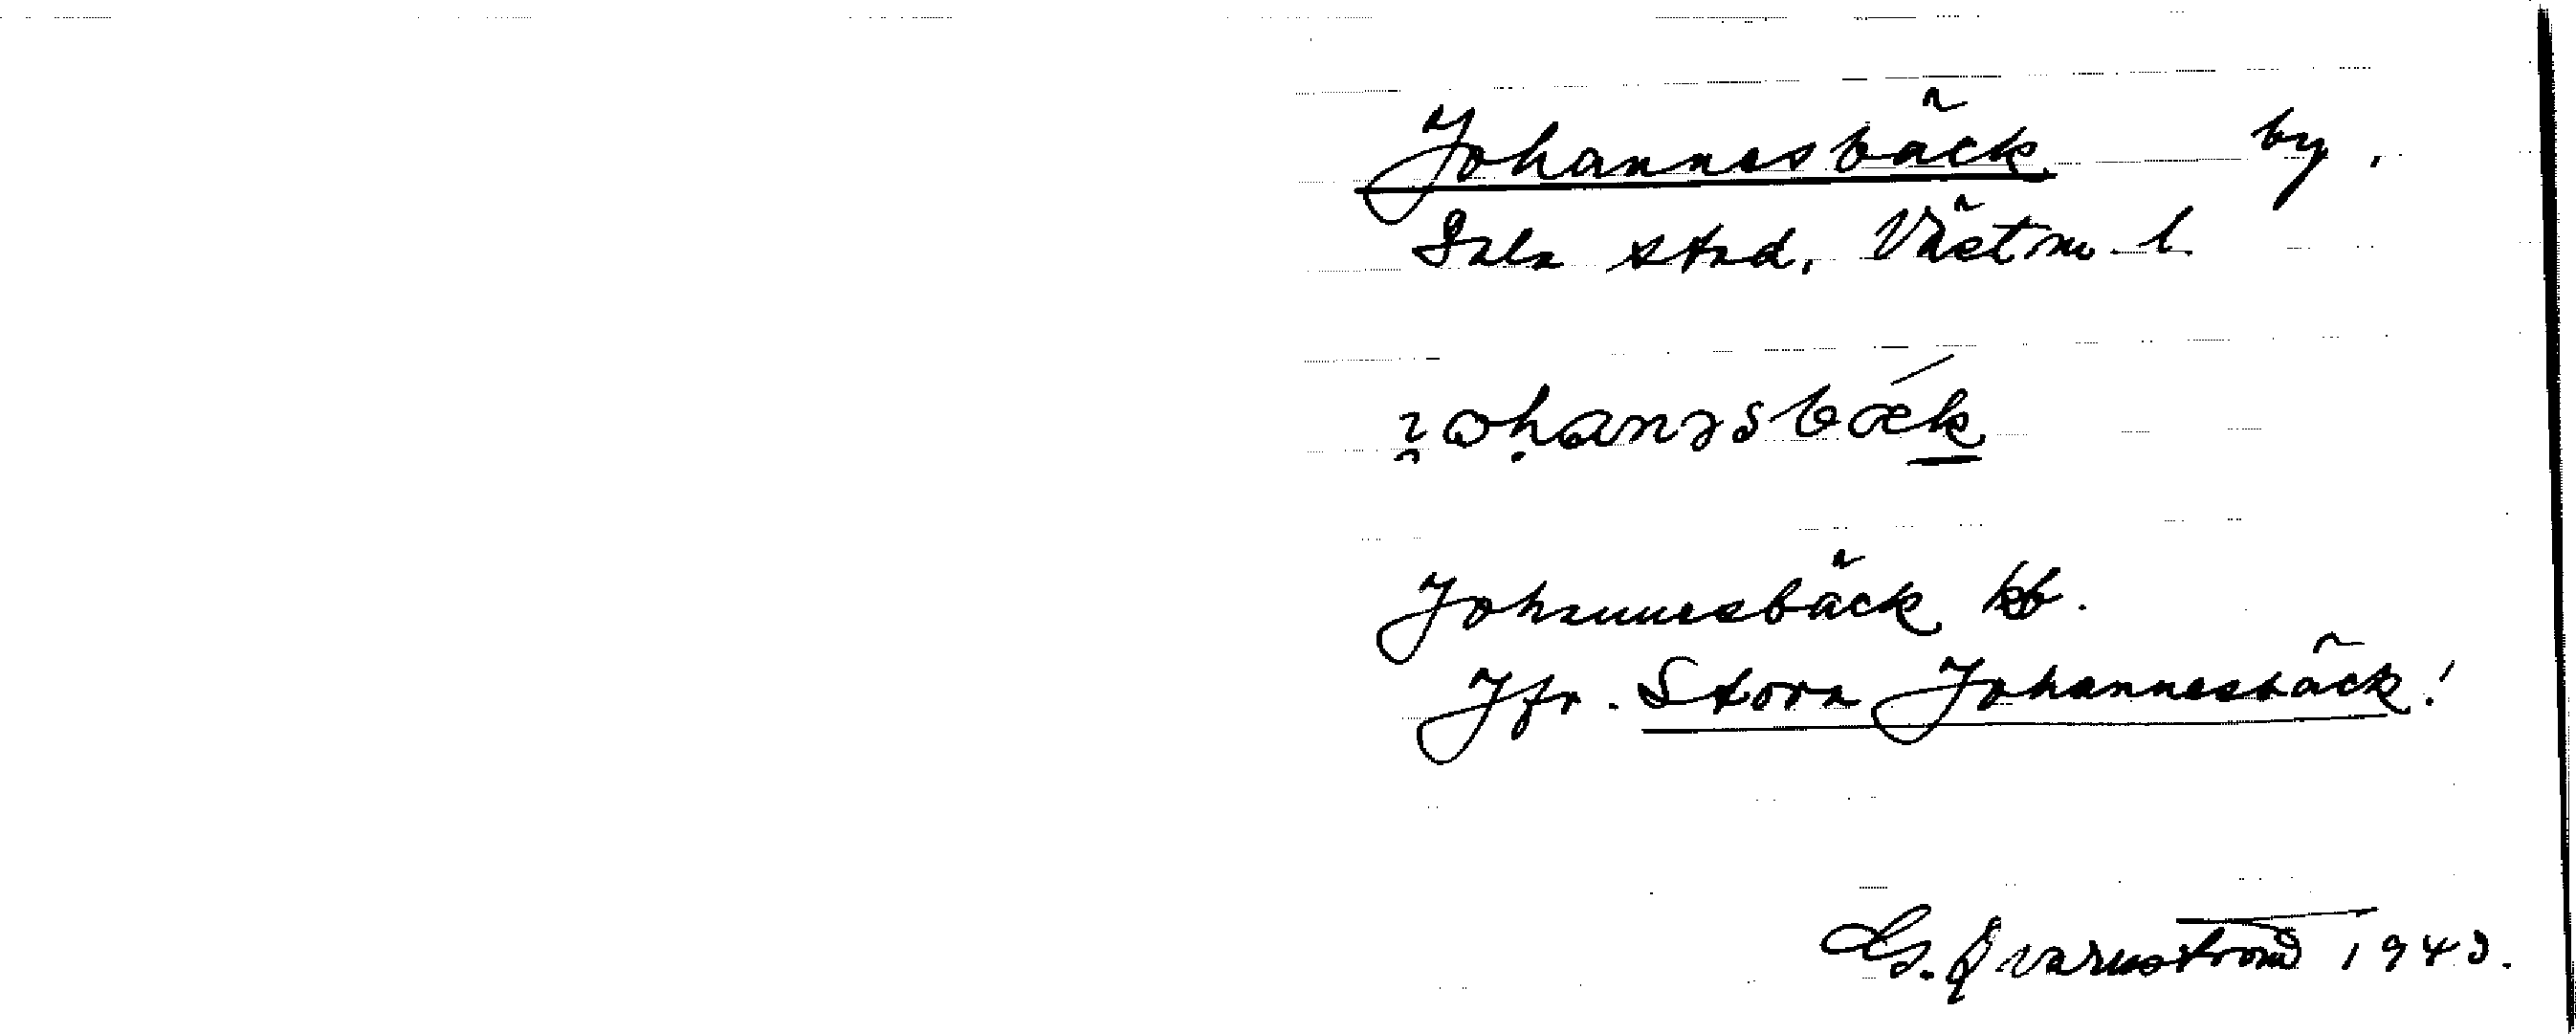 Johannesbäck by,
Sala stad, Västm. l.
Johannesbäck kb.
Jfr. Stora Johannesbäck!
G. Qvarnström